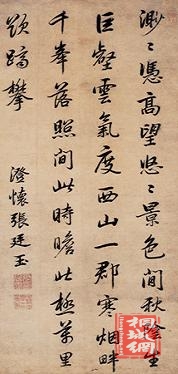 渺〻憑高望悠〻景色間秋陰生
巨壑雲氣度西山一郡寒烟畔
千峯落照間此時瞻此極萬里
欲躋攀
澄懷張廷玉
桐城網